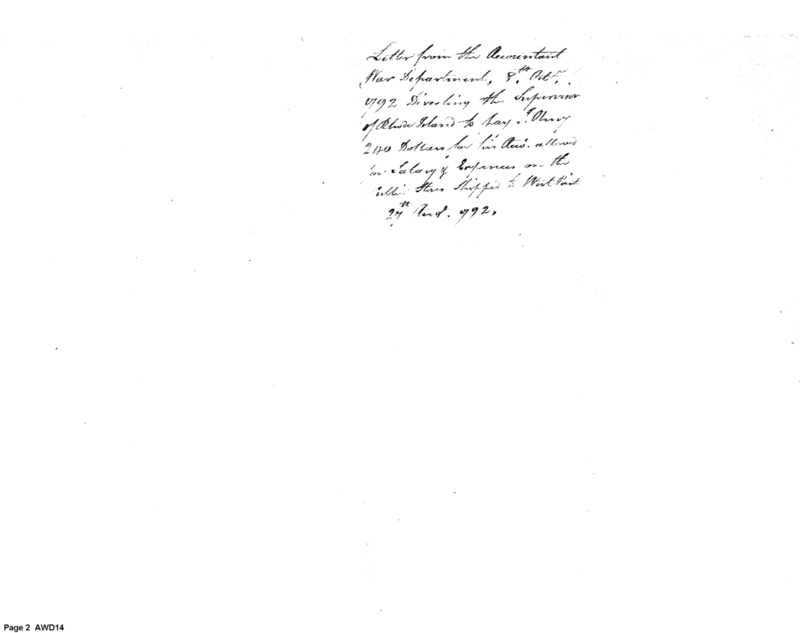 Letter from the Accountant
War Department, 8th Octr.
1792 Directing the Supervisor
of Rhode Island to pay J. Olney
Dollars for his Acco. allowed
for Salary & Expences on the
Public Stores Shipped to West Point
24th 1792.
Page 2 AWD14